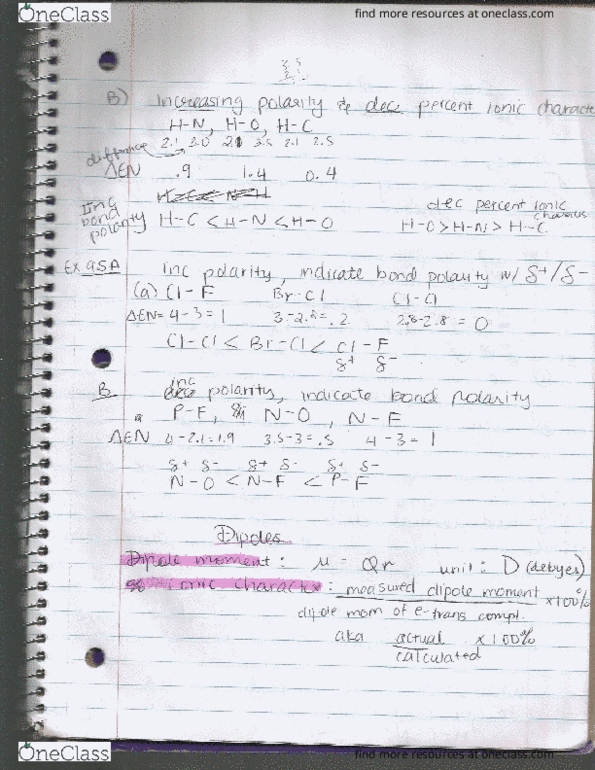 OneClass
find more resources at oneclass.com
B) Increasing polarity & decr percent ionic characte
H-N, H-O, H-C
2.1 3.0 2.1 3.5 2.1 2.5
difference
ΔEN .9 1.4 0.4
Inc bond polarity H-C < H-N < H-O
dec percent ionic
H-O > H-N > H-C
Ex 9.5A inc polarity, indicate bond polarity w/ δ+/δ-
(a) Cl-F Br-Cl Cl-Cl
ΔEN= 4-3=1 3-2.8=.2 2.8-2.8 = 0
Cl-Cl < Br-Cl < Cl-F
δ+ δ-
B inc polarity, indicate bond polarity
P-F, N-O, N-F
ΔEN 4-2.1=1.9 3.5-3=.5 4-3=1
δ+ δ- δ+ δ- δ+ δ-
N-O < N-F < P-F
Dipoles
Dipole moment: μ = Qr unit: D (debyes)
% ionic character: measured dipole moment ×100%
dipole mom of e-trans compl.
aka actual ×100%
calculated
OneClass
find more resources at oneclass.com